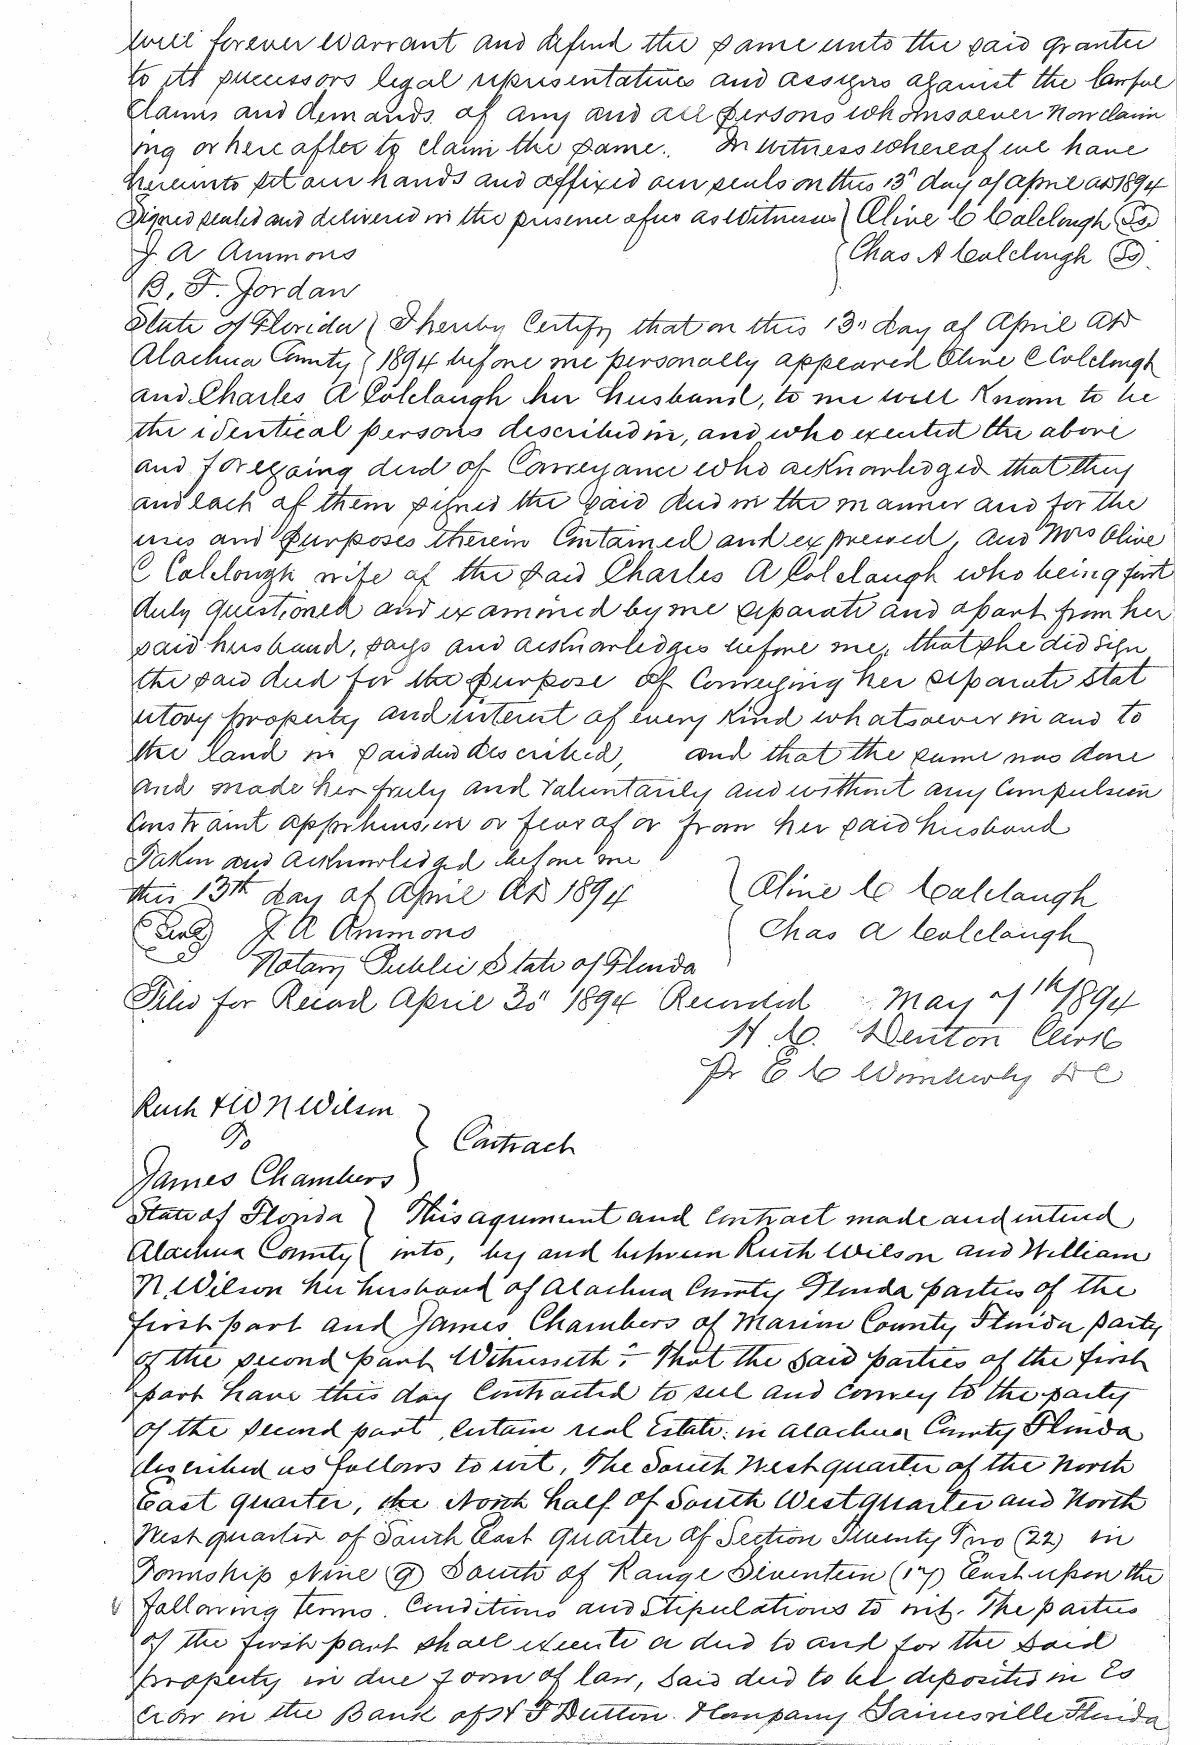 will forever warrant and defend the same unto the said grantee
to its successors legal representatives and assigns against the lawful
claims and demands of any and all persons whomsoever now claim
ing or hereafter to claim the same. In witness whereof we have
hereunto set our hands and affixed our seals on this 13" day of April AD 1894
Signed sealed and delivered in the presence of us as Witnesses } Oline C Colclough Ss
J A Ammons } Chas A Colclough Ss
B. F. Jordan
State of Florida } I hereby Certify that on this 13" day of April AD
Alachua County } 1894 before me personally appeared Oline C Colclough
and Charles A Colclough her husband, to me well Known to be
the identical persons described in, and who executed the above
and foregoing deed of Conveyance who acknowledged that they
and each of them signed the said deed in the manner and for the
uses and purposes therein Contained and expressed, and Mrs Oline
C Colclough wife of the said Charles A Colclough who being first
duly questioned and examined by me separate and apart from her
said husband, says and acknowledges before me, that she did sign
the said deed for the purpose of Conveying her separate Stat
utory property and interest of every Kind whatsoever in and to
the land in said deed described, and that the same was done
and made her freely and voluntarily and without any Compulsion
Constraint apprehension or fear of or from her said husband
Taken and acknowledged before me
this 13th day of April AD 1894 } Oline C Colclough
(Seal) J A Ammons } Chas A Colclough
Notary Public State of Florida
Filed for Record April 30" 1894 Recorded May 7th/1894
H. C. Denton Clerk
Pr E C Wimberly DC
Ruth & W N Wilson
To } Contract
James Chambers
State of Florida } This agreement and Contract made and entered
Alachua County } into, by and between Ruth Wilson and William
N. Wilson her husband of Alachua County Florida parties of the
first part and James Chambers of Marion County Florida party
of the second part Witnesseth:- That the said parties of the first
part have this day Contracted to sell and convey to the party
of the second part, certain real Estate in Alachua County Florida
described as follows to wit, The South West quarter of the North
East quarter, the North half of South West quarter and North
West quarter of South East quarter of Section Twenty Two (22) in
Township Nine (9) South of Range Seventeen (17) East upon the
following terms. Conditions and Stipulations to wit. The parties
of the first part shall execute a deed to and for the said
property in due form of law, said deed to be deposited in Es
crow in the Bank of H F Dutton & Company Gainesville Florida